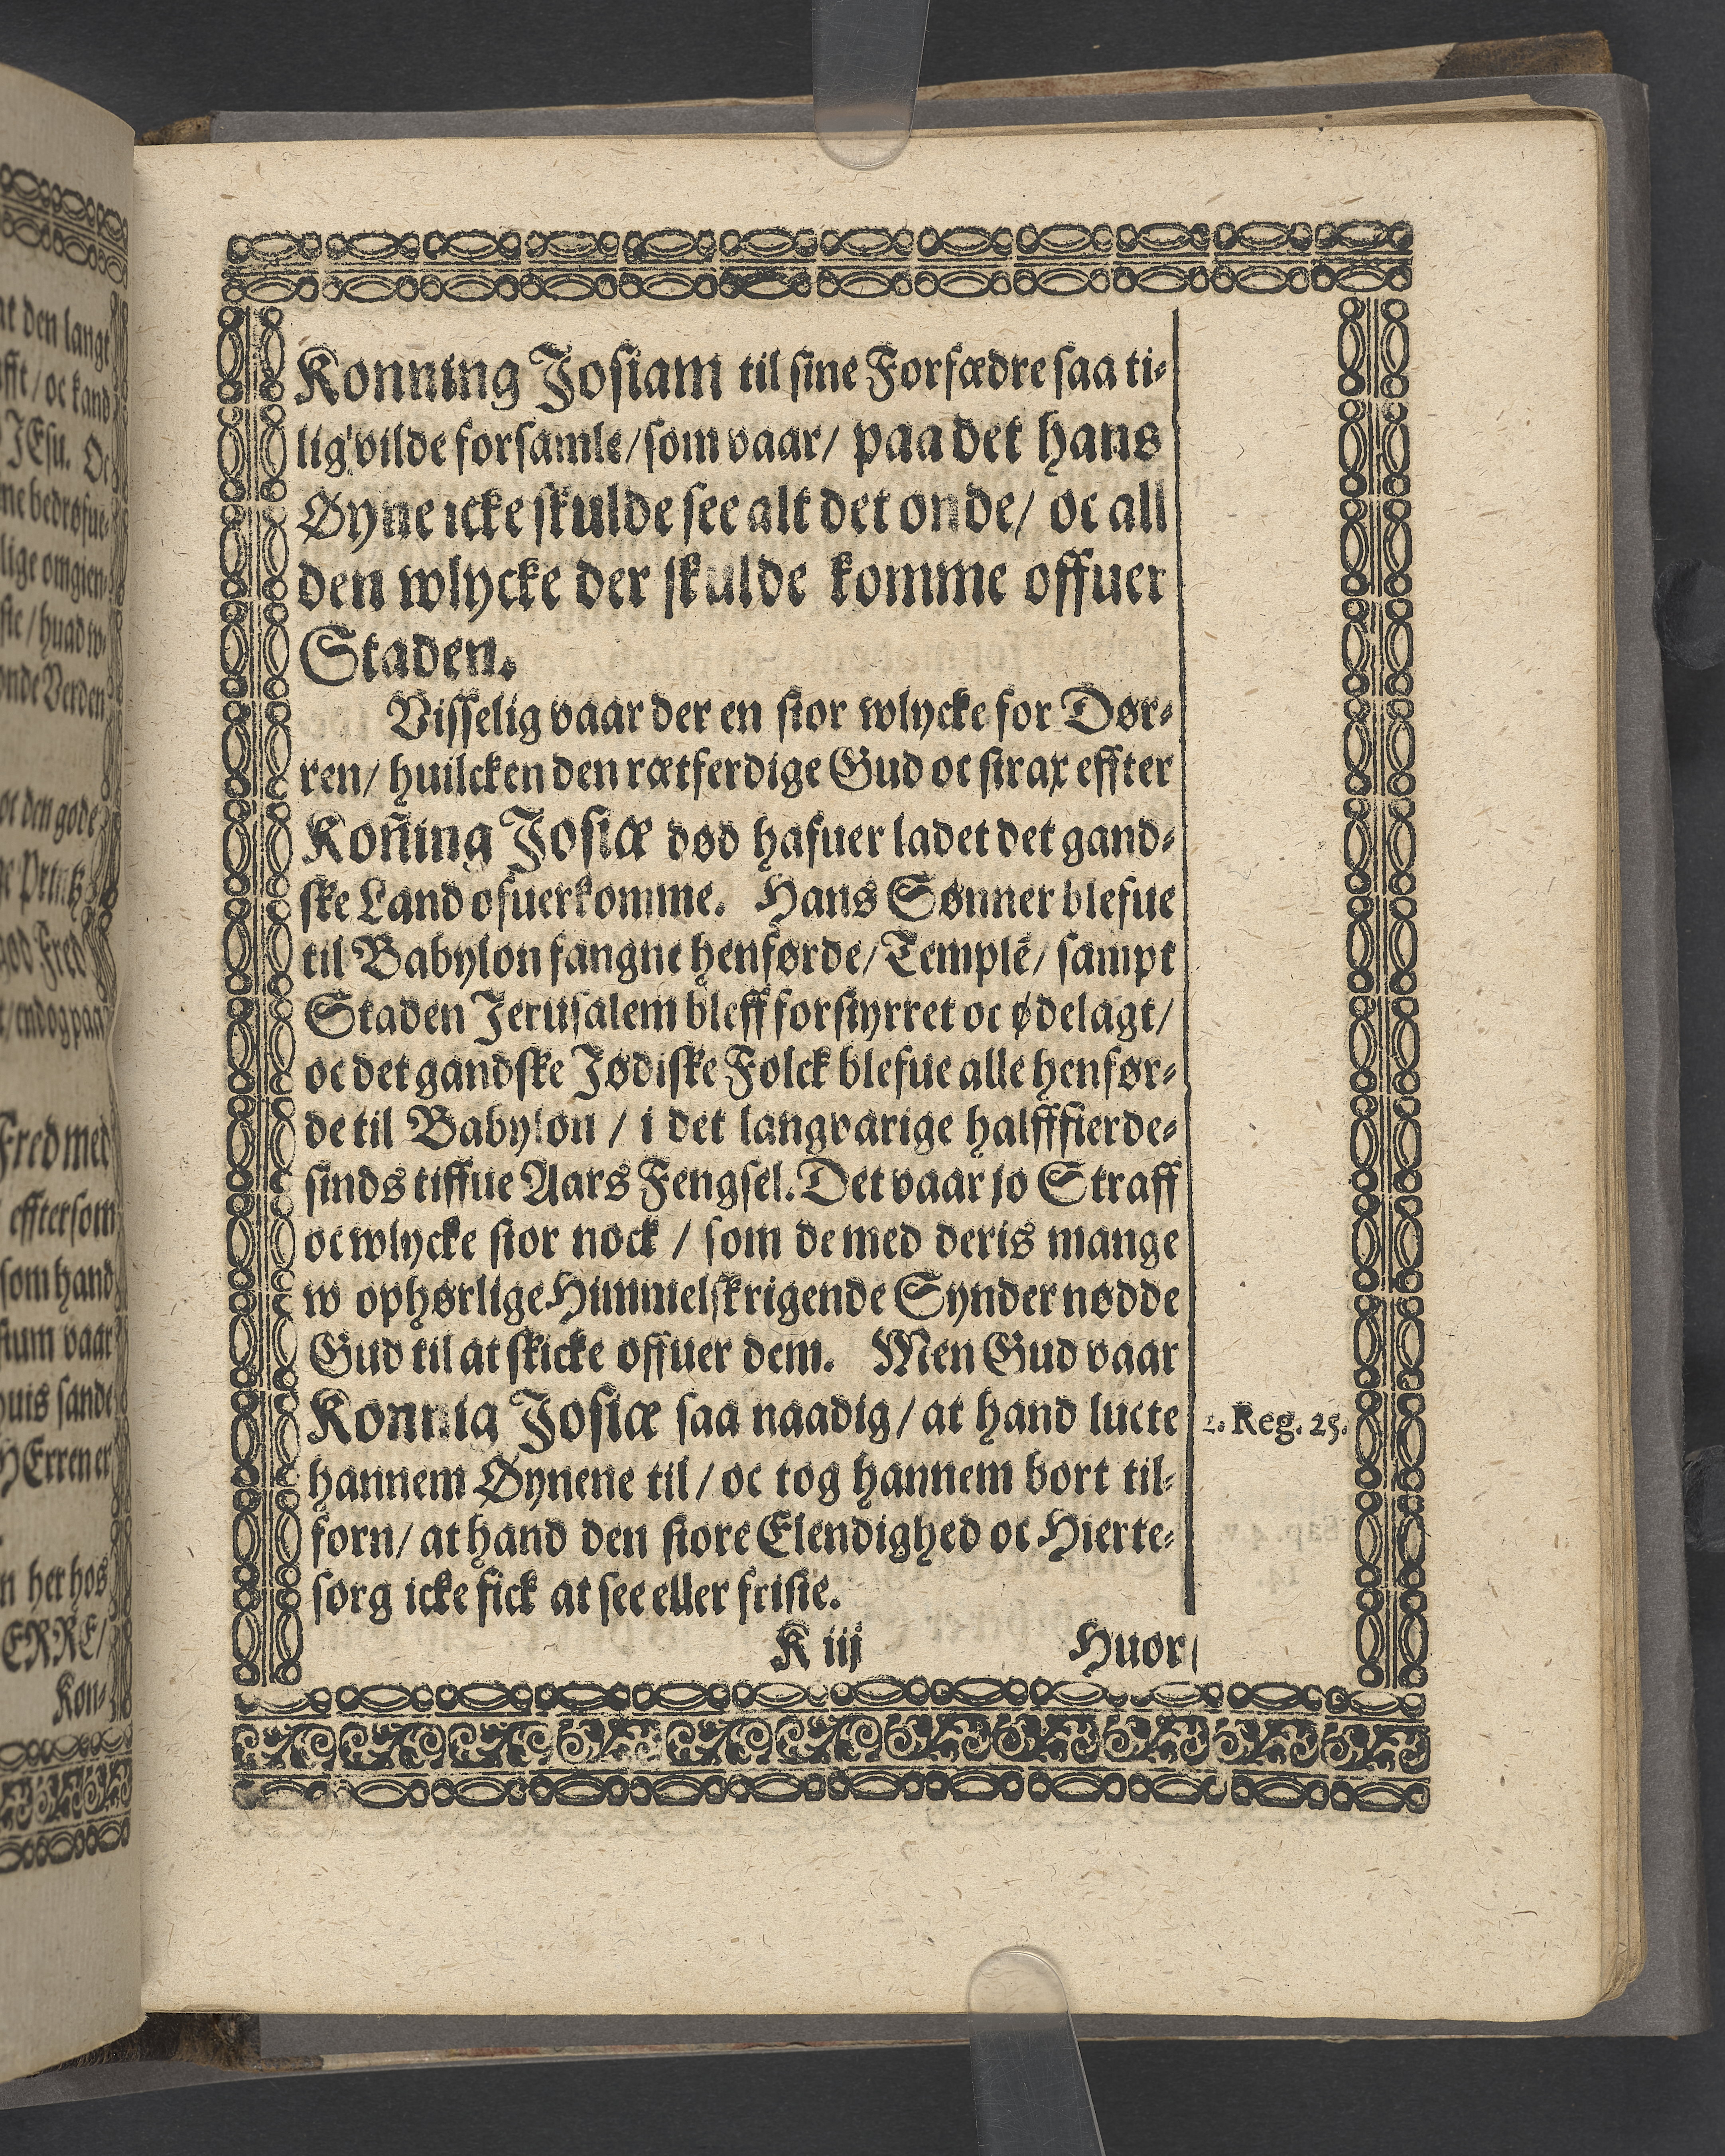 Konning Josiam til sine Forfædre saa ti-
lig vilde forsamle/ som vaar/ paa det hans
Øyne icke skulde see alt det onde/ oc all
den wlycke der skulde komme offuer
Staden.
Visselig vaar der en stor wlycke for Dør-
ren/ huilcken den rætferdige Gud oc strax effter
Koñing Josiæ død hafuer ladet det gand-
ske Land ofuerkomme. Hans Sønner blefue
til Babylon fangne henførde/ Templẽ/ sampt
Staden Jerusalem bleff forstyrret oc ødelagt/
oc det gandske Jødiske Folck blefue alle henfør-
de til Babylon / i det langvarige halfffierde-
sinds tiffue Aars Fengsel. Det vaar jo Straff
oc wlycke stor nock / som de med deris mange
w ophørlige Himmelskrigende Synder nødde
Gud til at skicke offuer dem. Men Gud vaar
Konnig Josiæ saa naadig/ at hand lucte
2. Reg. 25.
hannem Øynene til/ oc tog hannem bort til-
forn/ at hand den store Elendighed oc Hierte-
sorg icke fick at see eller fristẽ.
K iij Huor
at den langt
/ oc kand
JEsu. Oc
bedrøfue-
lige omgien-
/ huad w-
onde Verden
oc den gode
Printz
god Fred
/ endog paa
Fred med
effter som
som hand
vaar
huis sande
HErren er
her hos
ERRE/
Kon-